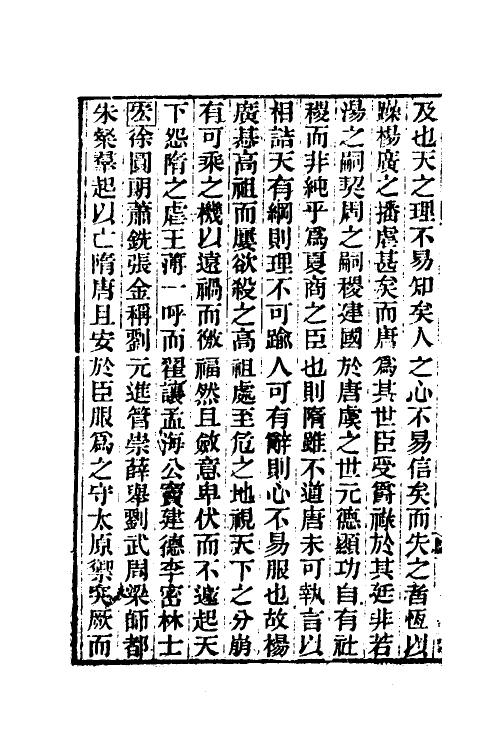 及也天之理不易知矣人之心不易信矣而失之者恆以
躁楊廣之播虐甚矣而唐爲其世臣受爵祿於其廷非若
湯之嗣契周之嗣稷建國於唐虞之世元德顯功自有社
稷而非純乎爲夏商之臣也則隋雖不道唐未可執言以
相詰天有綱則理不可踰人可有辭則心不易服也故楊
廣惎高祖而屢欲殺之高祖處至危之地視天下之分崩
有可乘之機以遠禍而徼福然且斂意卑伏而不遽起天
下怨隋之虐王薄一呼而翟讓孟海公竇建德李密林士
宏徐圓朗蕭銑張金稱劉元進管崇薛舉劉武周梁師都
朱粲羣起以亡隋唐且安於臣服爲之守太原禦突厥而